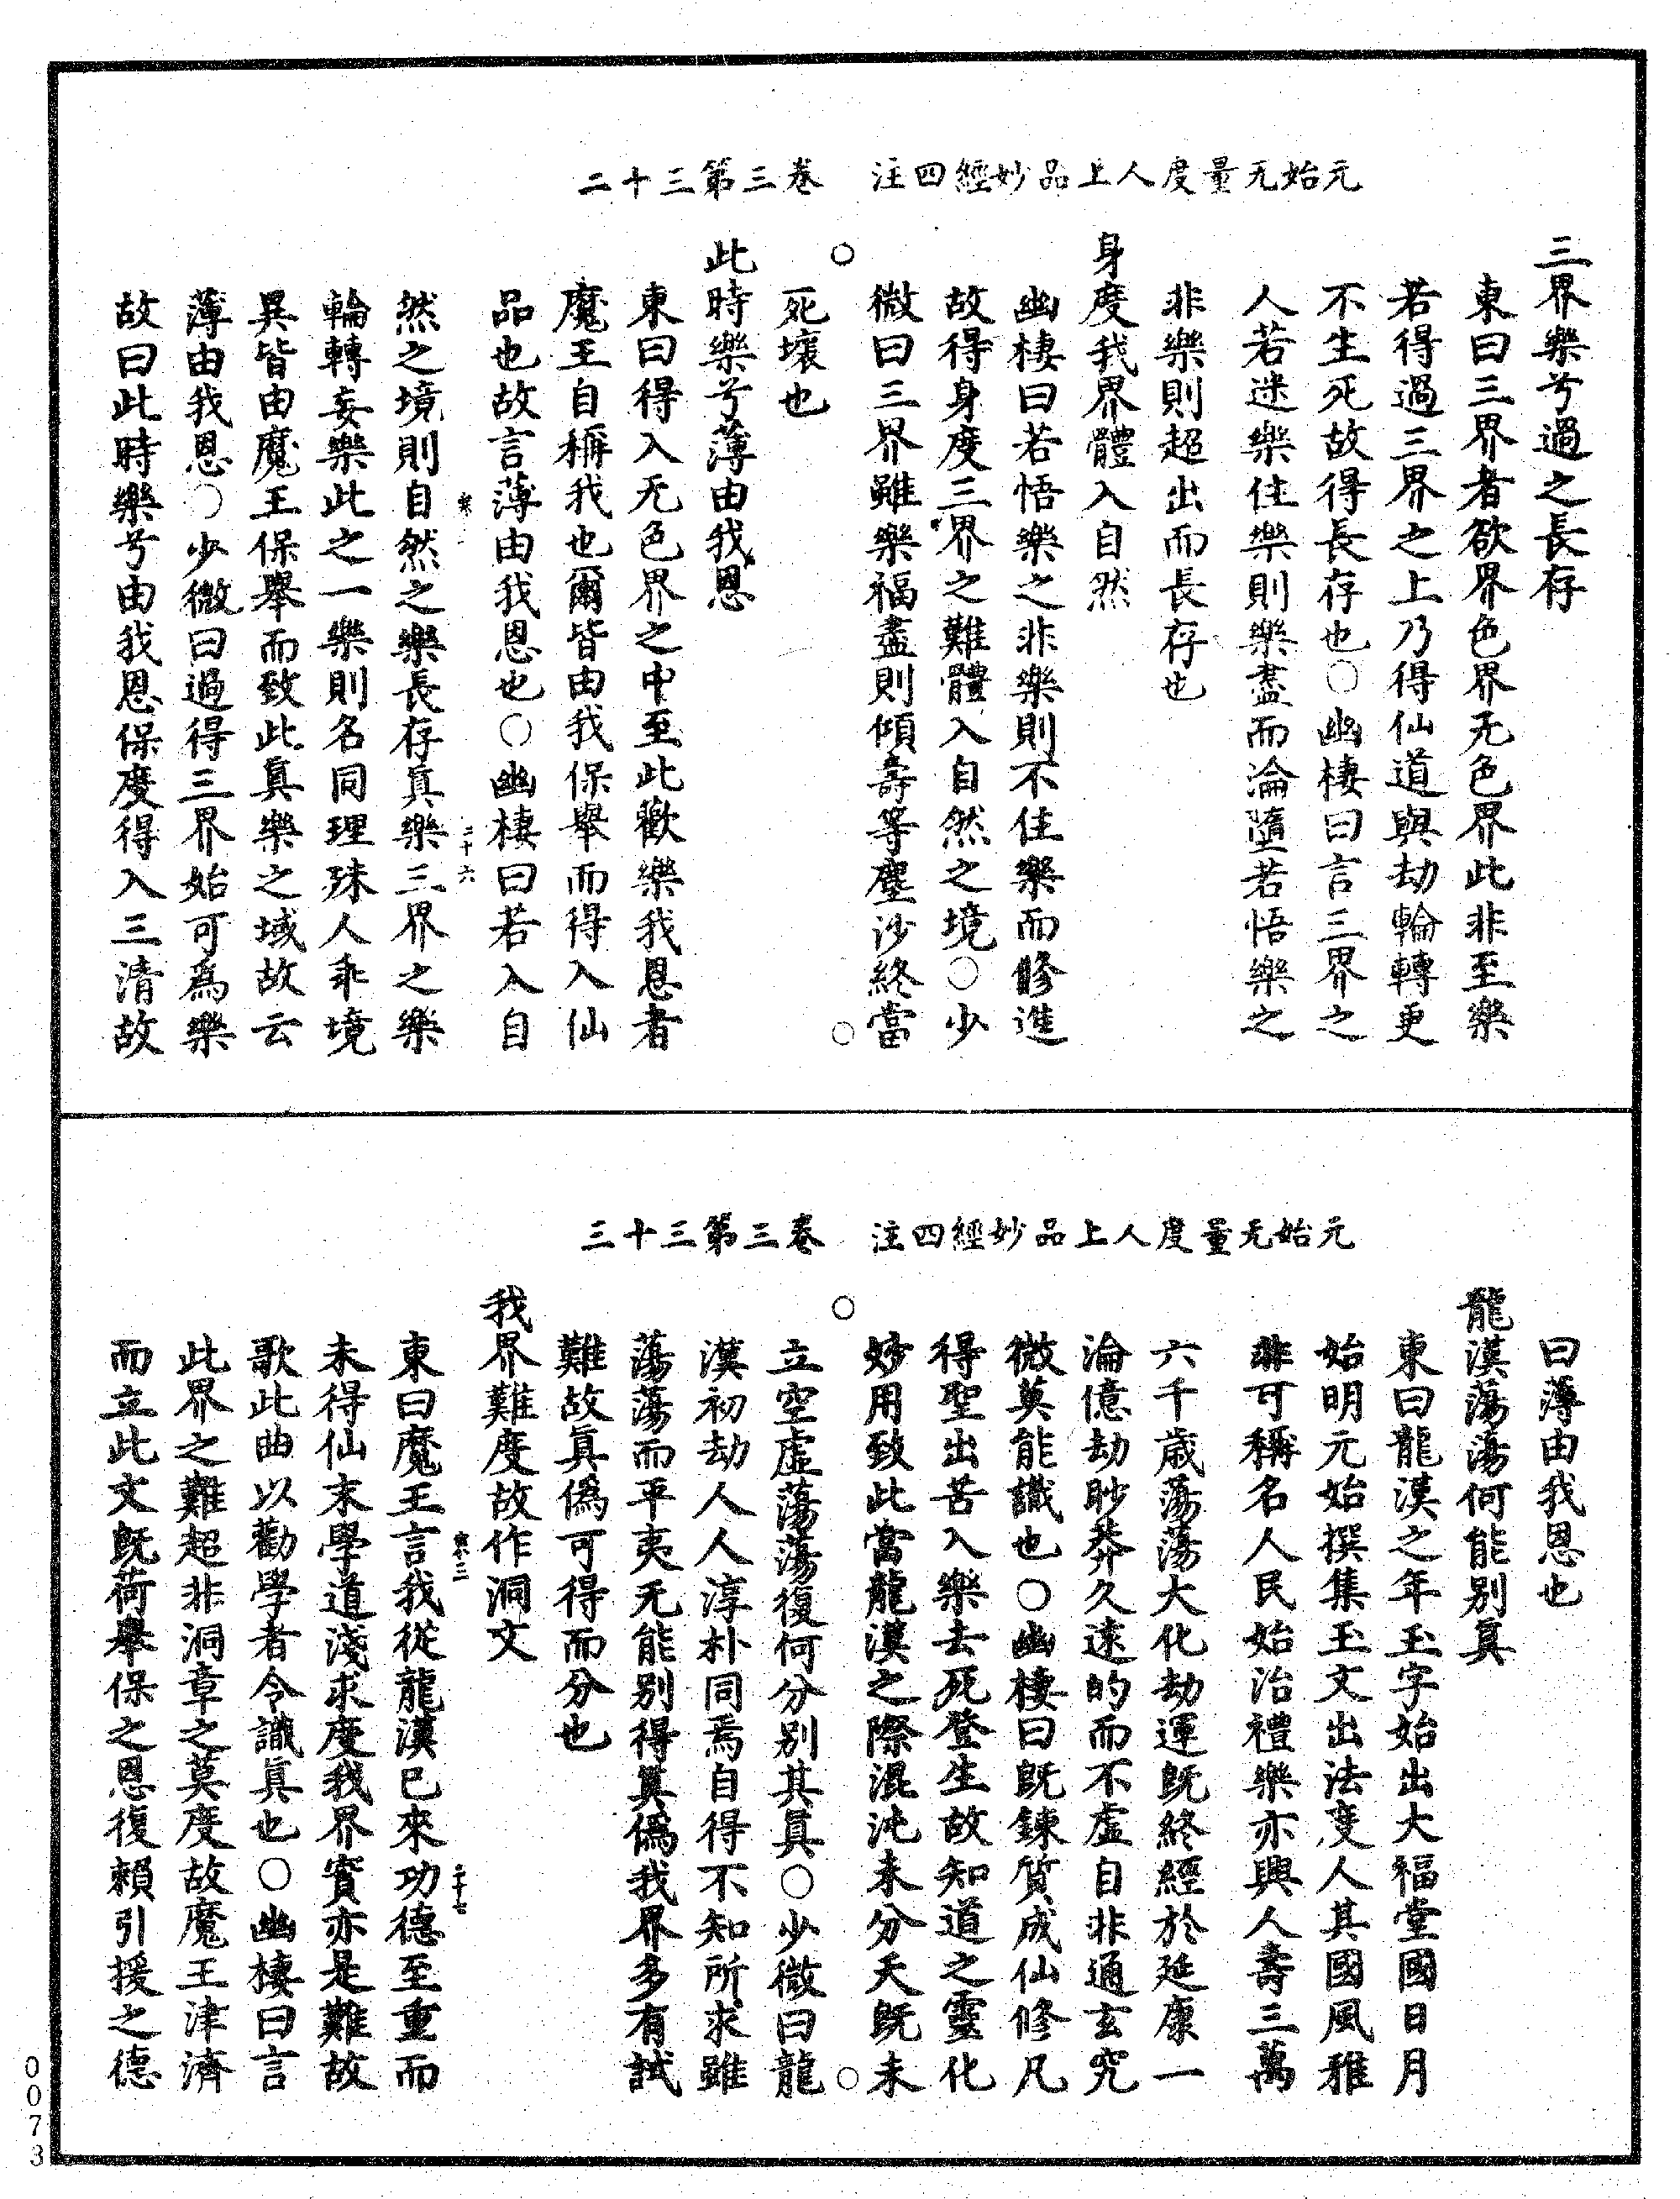 元始无量度人上品妙經四注　卷三第三十二
三界樂兮過之長存
東曰三界者欲界色界无色界此非至樂
若得過三界之上乃得仙道與劫輪轉更
不生死故得長存也○幽棲曰言三界之
人若迷樂住樂則樂盡而淪墮若悟樂之
非樂則超出而長存也
身度我界體入自然
幽棲曰若悟樂之非樂則不住樂而修進
故得身度三界之難體入自然之境○少
微曰三界雖樂福盡則傾壽等塵沙終當
死壞也
此時樂兮薄由我恩
東曰得入无色界之中至此歡樂我恩者
魔王自稱我也爾皆由我保舉而得入仙
品也故言薄由我恩也○幽棲曰若入自
二十六
然之境則自然之樂長存真樂三界之樂
輪轉妄樂此之一樂則名同理殊人乖境
異皆由魔王保舉而致此真樂之域故云
薄由我恩○少微曰過得三界始可為樂
故曰此時樂兮由我恩保度得入三清故
元始无量度人上品妙經四注　卷三第三十三
曰薄由我恩也
龍漢蕩蕩何能別真
東曰龍漢之年玉字始出大福堂國日月
始明元始撰集玉文出法度人其國風雅
非可稱名人民始治禮樂亦興人壽三萬
六千歲蕩蕩大化劫運既終經於延康一
淪億劫眇莽久遠的而不虛自非通玄究
微莫能識也○幽棲曰既鍊質成仙修凡
得聖出苦入樂去死登生故知道之靈化
妙用致此當龍漢之際混沌未分天既未
立空虛蕩蕩復何分別其真○少微曰龍
漢初劫人人淳朴同焉自得不知所求雖
蕩蕩而平夷无能別得真偽我界多有試
難故真偽可得而分也
我界難度故作洞文
二十七
東曰魔王言我從龍漢已來功德至重而
未得仙末學道淺求度我界實亦是難故
歌此曲以勸學者令識真也○幽棲曰言
此界之難超非洞章之莫度故魔王津濟
而立此文既荷舉保之恩復賴引援之德
0073